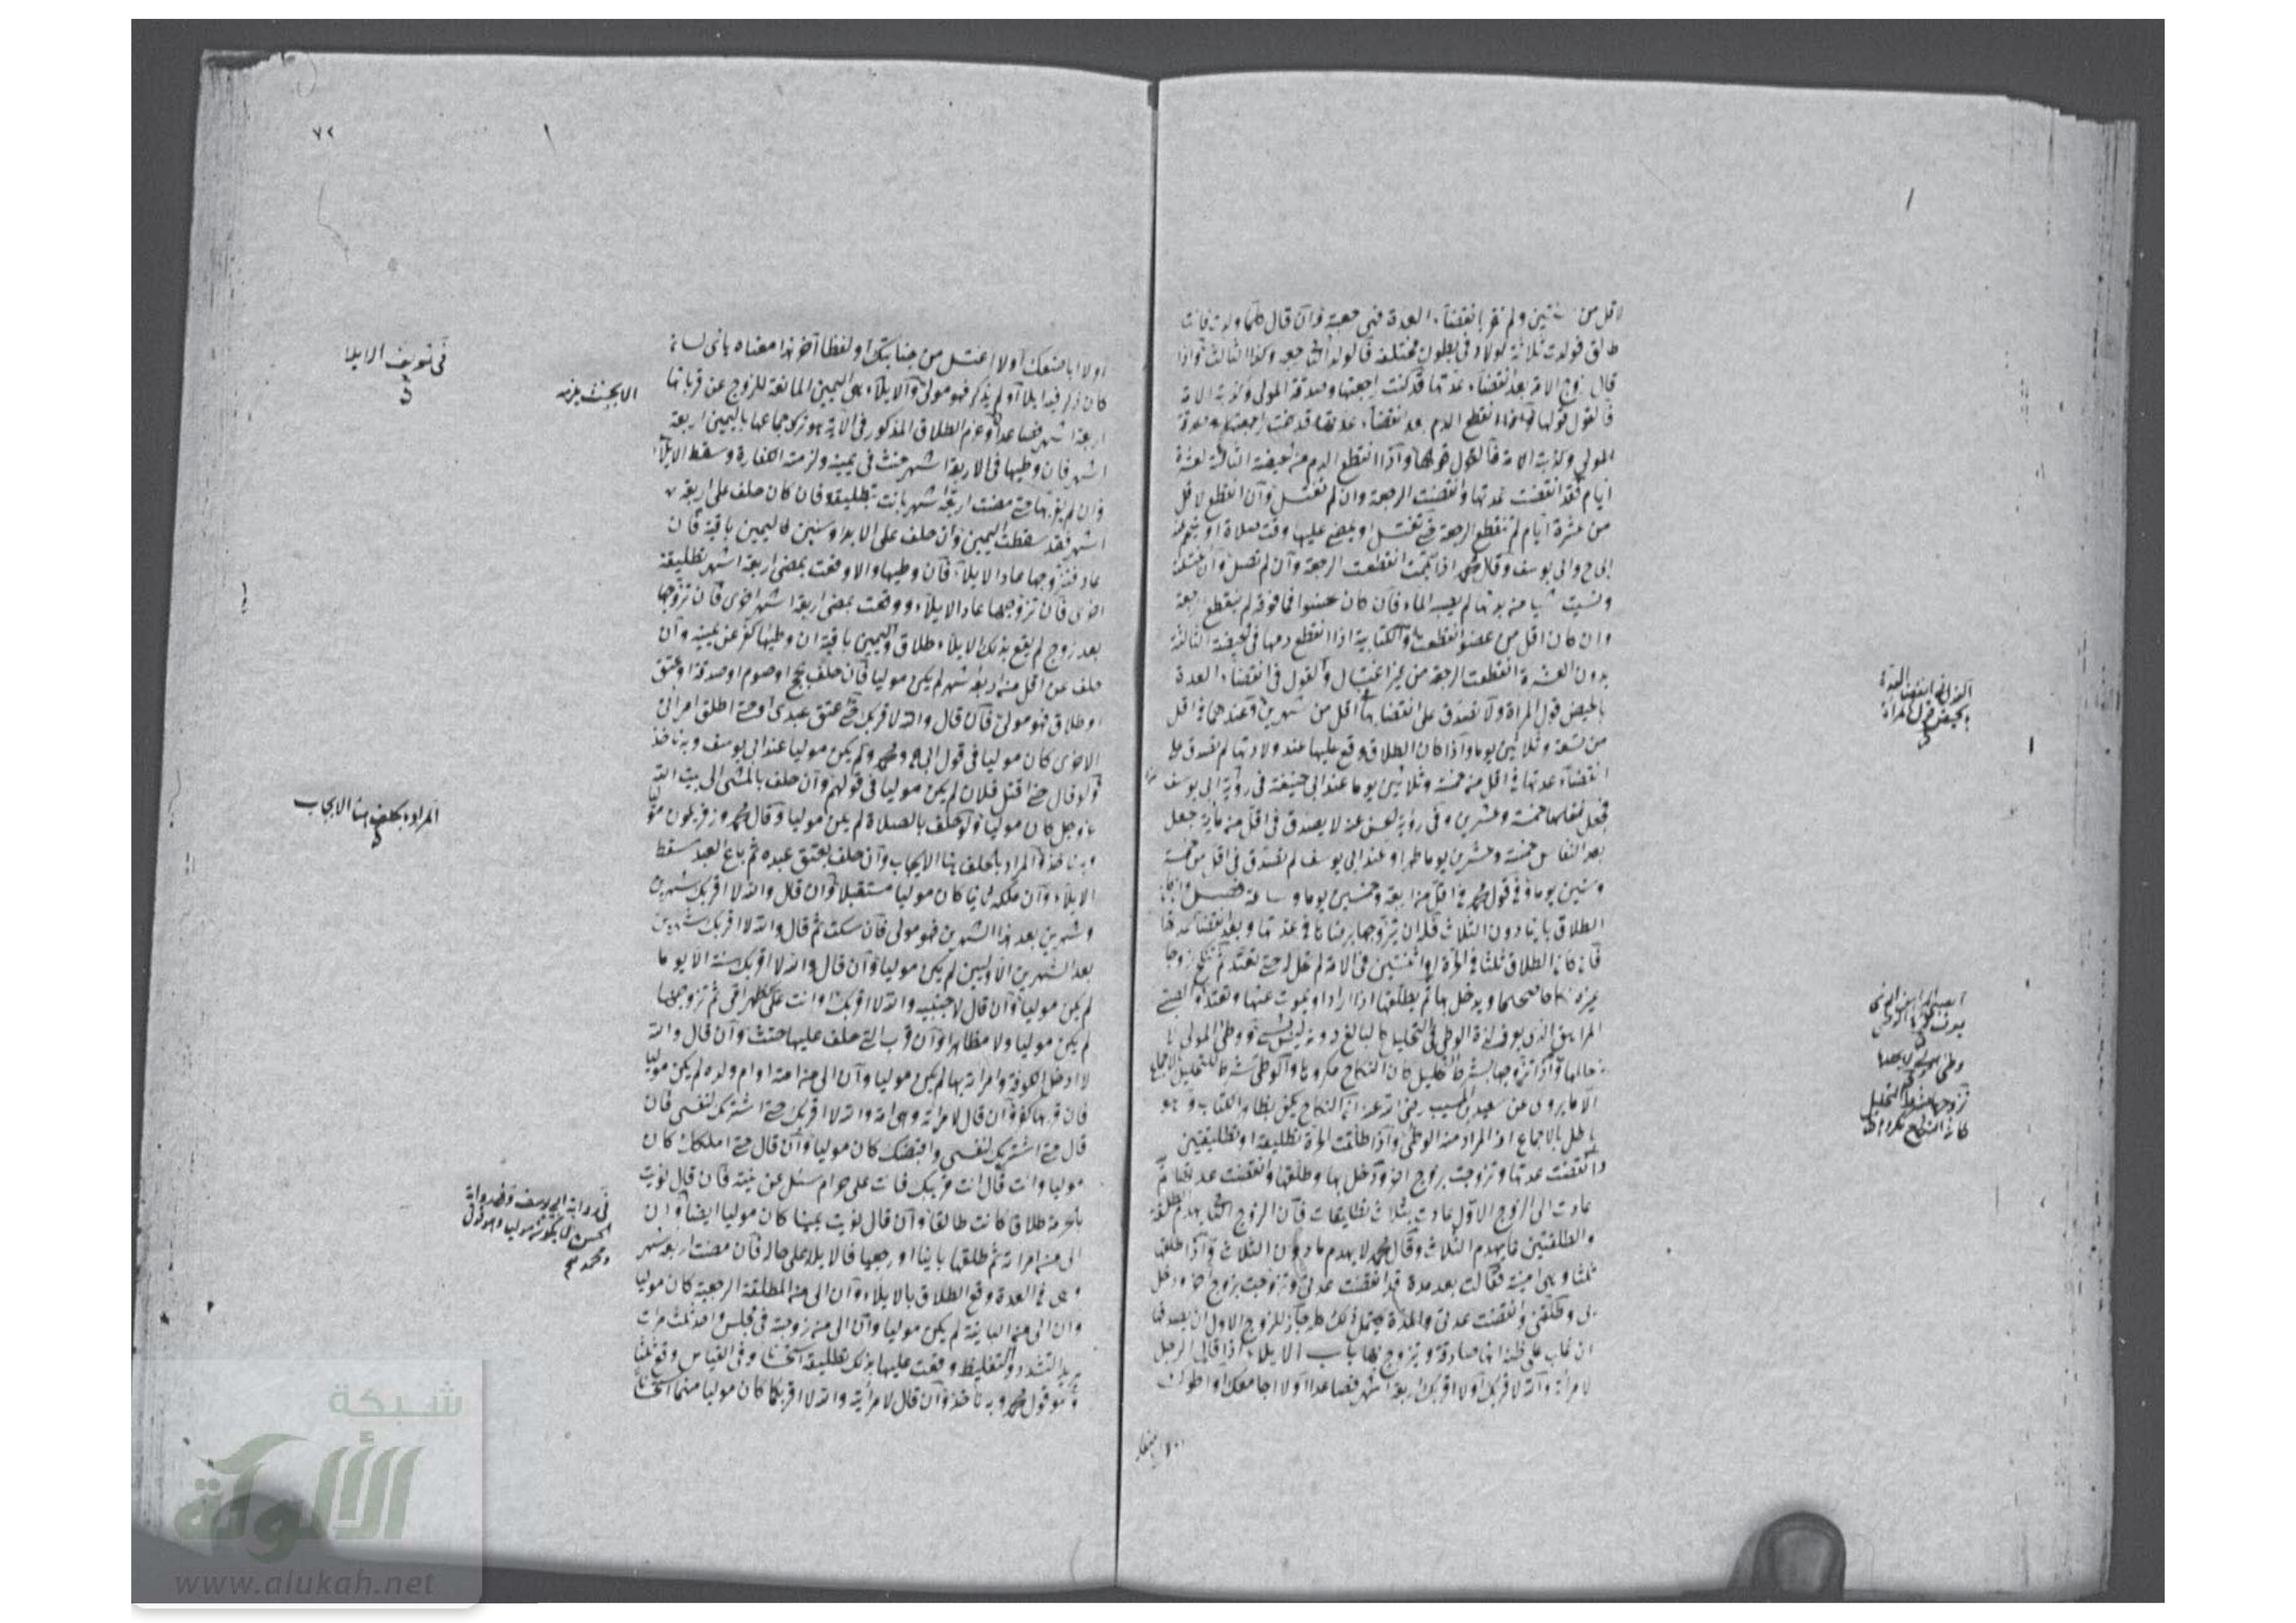 لاقل من سنتين ولم تقر بانقضاء العدة فهي رجعية وان قال كلما ولدت فانت
طالق فولدت ثلاثة اولاد في بطون مختلفة فالولد الثاني رجعة وكذا الثالث واذا
قال زوج الامة بعد انقضاء عدتها قد كنت راجعتها وصدقه المولى وكذبته الامة
فالقول قولها انقطع الدم بعد انقضاء عدتها قد كنت راجعتك
المولى وكذبته الامة فالقول واذا انقطع الدم من الحيضة الثالثة لعشرة
ايام فقد انقضت عدتها وانقضت الرجعة وان لم تغتسل وان انقطع لاقل
من عشرة ايام لم تنقطع الرجعة حتى تغتسل او يمضي عليها وقت صلاة او تتيمم عند
ابي ح وابي يوسف وقال محمد اذا تيممت انقطعت الرجعة وان لم تصل وان اغتسلت
ونسيت شيا من بدنها لم يصبه الماء فان كان عضوا فما فوقه لم تنقطع الرجعة
وان كان اقل من عضو انقطعت والكتابية اذا انقطع دمها في الحيضة الثالثة
بدون العشرة انقطعت الرجعة من غير اغتسال والقول في انقضاء العدة
بالحيض قول المراة ولا تصدق على انقضائها في اقل من شهرين وعندهما في اقل
من تسعة وثلاثين يوما واذا كان الطلاق وقع عليها عند ولادتها لم تصدق على
انقضاء عدتها في اقل من خمسة وثلاثين يوما عند ابي حنيفة في رواية ابي يوسف
فجعل نفاسها خمسة وعشرين وفي رواية الحسن عنه لا يصدق في اقل من مائة جعل
بعد النفاس خمسة وعشرين يوما طهرا وعند ابي يوسف لم تصدق في اقل من خمسة
وستين يوما وفي قول محمد في اقل من اربعة وخمسين يوما وساعة فصل واذا كان
الطلاق باينا دون الثلاث فله ان يتزوجها برضاها في عدتها وبعد انقضاء عدتها
فان كان الطلاق ثلثا في الحرة او اثنتين في الامة لم تحل له حتى تعتد ثم تنكح زوجا
غيره نكاحا صحيحا ويدخل بها ثم يطلقها اذا اراد او يموت عنها وتعتد والصبي
المراهق الذي يعرف لذة الوطئ في التحليل كالبالغ دونه ليس بشيء ووطئ المولى لا
يحللها واذا تزوجها بشرط التحليل كان النكاح مكروها والوطئ شرط للتحليل بالاجماع
الا ما يروى عن سعيد بن المسيب رضي الله عنه ان النكاح يكفي بظاهر الكتاب وهو
باطل بالاجماع اذ المراد منه الوطئ واذا طلقت الحرة تطليقة او تطليقتين
وانقضت عدتها وتزوجت بزوج اخر ودخل بها وطلقها وانقضت عدتها ثم
عادت الى الزوج الاول عادت بثلاث تطليقات فان الزوج الثاني يهدم الطلقة
والطلقتين كما يهدم الثلاث وقال محمد لا يهدم ما دون الثلاث واذا طلقها
ثلثا وهي امينة فقالت بعد مدة قد انقضت عدتي وتزوجت بزوج اخر ودخل
بي وطلقني وانقضت عدتي والمدة يحتمل ذلك جاز للزوج الاول ان يصدقها
ان غلب على ظنه انها صادقة ويتزوج بها باب الايلاء اذا قال الرجل
لامراته والله لا اقربك او لا اقربك اربعة اشهر فصاعدا او لا اجامعك او لا اطؤك
القول في انقضاء العدة
بالحيض قول المراة
وطئ المولى لا يحللها
تزوجها بشرط التحليل
كان النكاح مكروها
٧٢
او لا اباضعك او لا اغتسل من جنابتك او لفظا آخر هذا معناه باي لسان
كان ذكر فيه ايلاء او لم يذكر فهو مولى والايلاء هي اليمين المانعة للزوج عن قربانها
اربعة اشهر فصاعدا وعزم الطلاق المذكور في الآية هو ترك جماعها باليمين اربعة
اشهر فان وطيها في الاربعة اشهر حنث في يمينه ولزمته الكفارة وسقط الايلاء
وان لم يقربها حتى مضت اربعة اشهر بانت بتطليقة فان كان حلف على اربعة
اشهر فقد سقطت اليمين وان حلف على الابد او سنين فاليمين باقية فان
عاد فتزوجها عاد الايلاء فان وطيها والا وقعت بمضي اربعة اشهر تطليقة
اخرى فان تزوجها عاد الايلاء ووقعت بمضي اربعة اشهر اخرى فان تزوجها
بعد زوج لم يقع بذلك الايلاء طلاق واليمين باقية ان وطيها كفر عن يمينه وان
حلف على اقل من اربعة اشهر لم يكن موليا فان حلف بحج او صوم او صدقة او عتق
او طلاق فهو مولى فان قال والله لا اقربك حتى اعتق عبدي او حتى اطلق امراتي
الاخرى كان موليا في قول ابي ح ومحمد ولم يكن موليا عند ابي يوسف وبه ناخذ
ولو قال حتى اقتل فلان لم يكن موليا في قولهم وان حلف بالمشي الى بيت الله
عز وجل كان موليا ولو حلف بالصلاة لم يكن موليا وقال محمد وزفر يكون موليا
وبه ناخذ المراد بالحلف هنا الايجاب وان حلف بعتق عبده ثم باع العبد سقط
الايلاء وان ملكه ثانيا كان موليا مستقبلا وان قال والله لا اقربك شهرين
وشهرين بعد هذا الشهرين فهو مولى فان سكت ثم قال والله لا اقربك شهرين
بعد الشهرين الاوليين لم يكن موليا وان قال والله لا اقربك سنة الا يوما
لم يكن موليا وان قال لاجنبية والله لا اقربك او انت علي كظهر امي ثم تزوجها
لم يكن موليا ولا مظاهرا وان قرب التي حلف عليها حنث وان قال والله
لا ادخل الكوفة وامراته بها لم يكن موليا وان الى من امته او ام ولده لم يكن موليا
فان قربها كفر وان قال لامراته وهي امة والله لا اقربك حتى اشتريك لنفسي فان
قال حتى اشتريك لنفسي واقبضك كان موليا وان قال حتى املكك كان
موليا وانت قال انت علي حرام سئل عن نيته فان قال نويت
طلاق كانت طالقا وان قال نويت يمينا كان موليا ايضا وان
الى من امراته ثم طلقها باينا او رجعيا فالايلاء على حاله فان مضت اربعة اشهر
وهي في العدة وقع الطلاق بالايلاء وان الى من المطلقة الرجعية كان موليا
وان الى من الباينة لم يكن موليا وان الى من زوجته في مجلس واحد ثلث مرات
يريد التشدد والتغليظ وقعت عليها بذلك تطليقة استحسانا وفي القياس وقع ثلثا
وهو قول محمد وبه ناخذ وان قال لامراتيه والله لا اقربكما كان موليا منهما استحسانا
في تعريف الايلاء
المراد بالحلف هنا الايجاب
في رواية ابي يوسف وفي رواية
الحسن لا يكون موليا وهو قول
شبكة
الألوكة
www.alukah.net